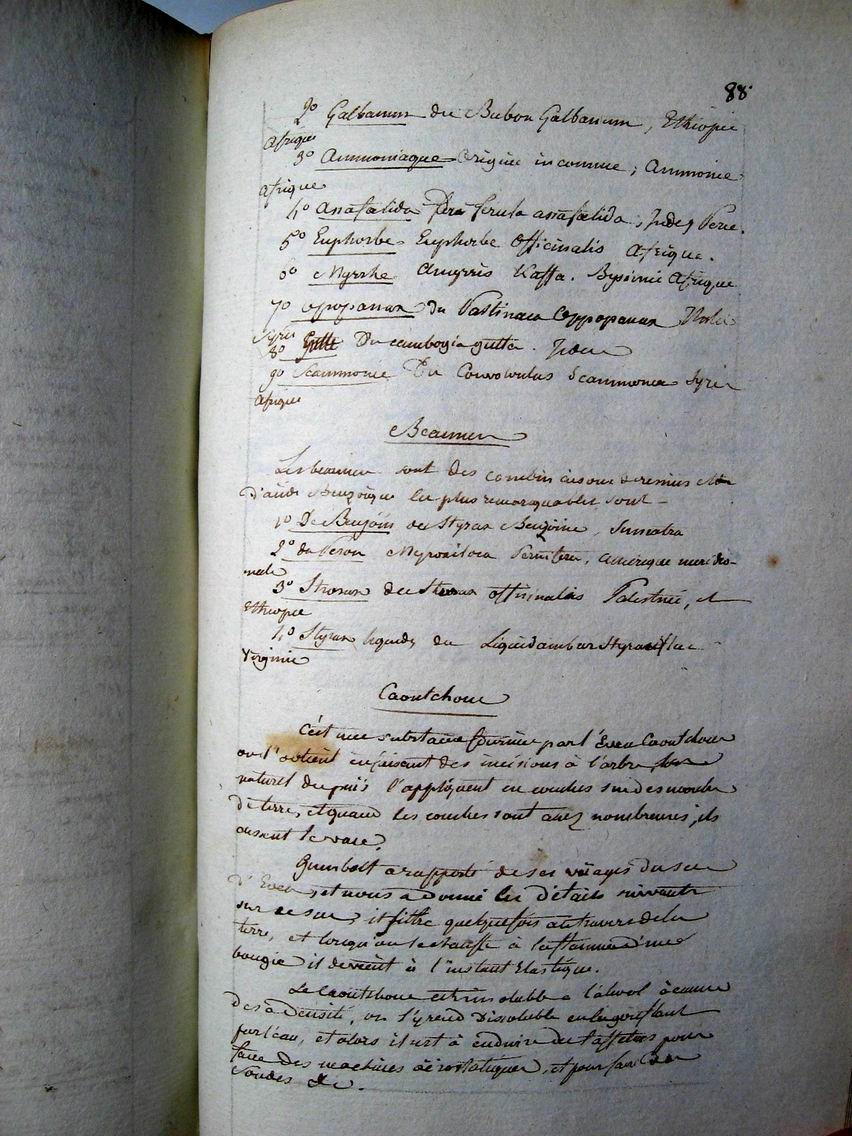 88
2° Galbanum du Bubon Galbanum, Ethiopie
Afrique
3° Ammoniaque Origine inconnue; Ammonie
Afrique
4° assafœlida ferula assafœlida; Indes Perse.
5° Euphorbe Euphorbe Officinalis Afrique.
6° Myrrhe Amyris Kaffa. Afrique
7° opopanax du Pastinaca Oppopanax
Syrie
8° Gutte Du cambogia gutta. Indes
9° Scammonée Du Convolvulus Scammonea Syrie
Afrique
Beaumes
Les beaumes sont des combinaisons de resines et
d'acide Benzoïque les plus remarquables sont -
1° De Benjoin du Styrax Benzoine, Sumatra
2° du Perou Myroxilon Peruiferu, Amérique meridio-
nale
3° Storax du Storax officinalis Palestine, et
Ethiopie
4° Styrax liquide du Liquidambar Styraciflue
Virginie
Caoutchouc
C'est une substance fournie par l'Evea Caoutchouc
on l'obtient en faisant des incisions à l'arbre
naturel depuis l'appliquent en couches sur des moules
de terre, et quand les couches sont assez nombreuses, ils
cassent le vase.
Gumbolt a rapporté de ses voyages du suc
d'Evea, et nous a donné les détails suivants
sur ce suc, il filtre quelquefois au travers de la
terre, et lorsqu'on le chauffe à la flamme d'une
bougie il devient à l'instant Elastique.
Le Caoutchouc est insoluble a l'alcool à cause
de sa densité, on l'y rend Dissoluble en le gonflant
par l'eau, et alors il sert à enduire du taffetas pour
faire des machines aërostatiques, et pour faire des
Sondes &c.